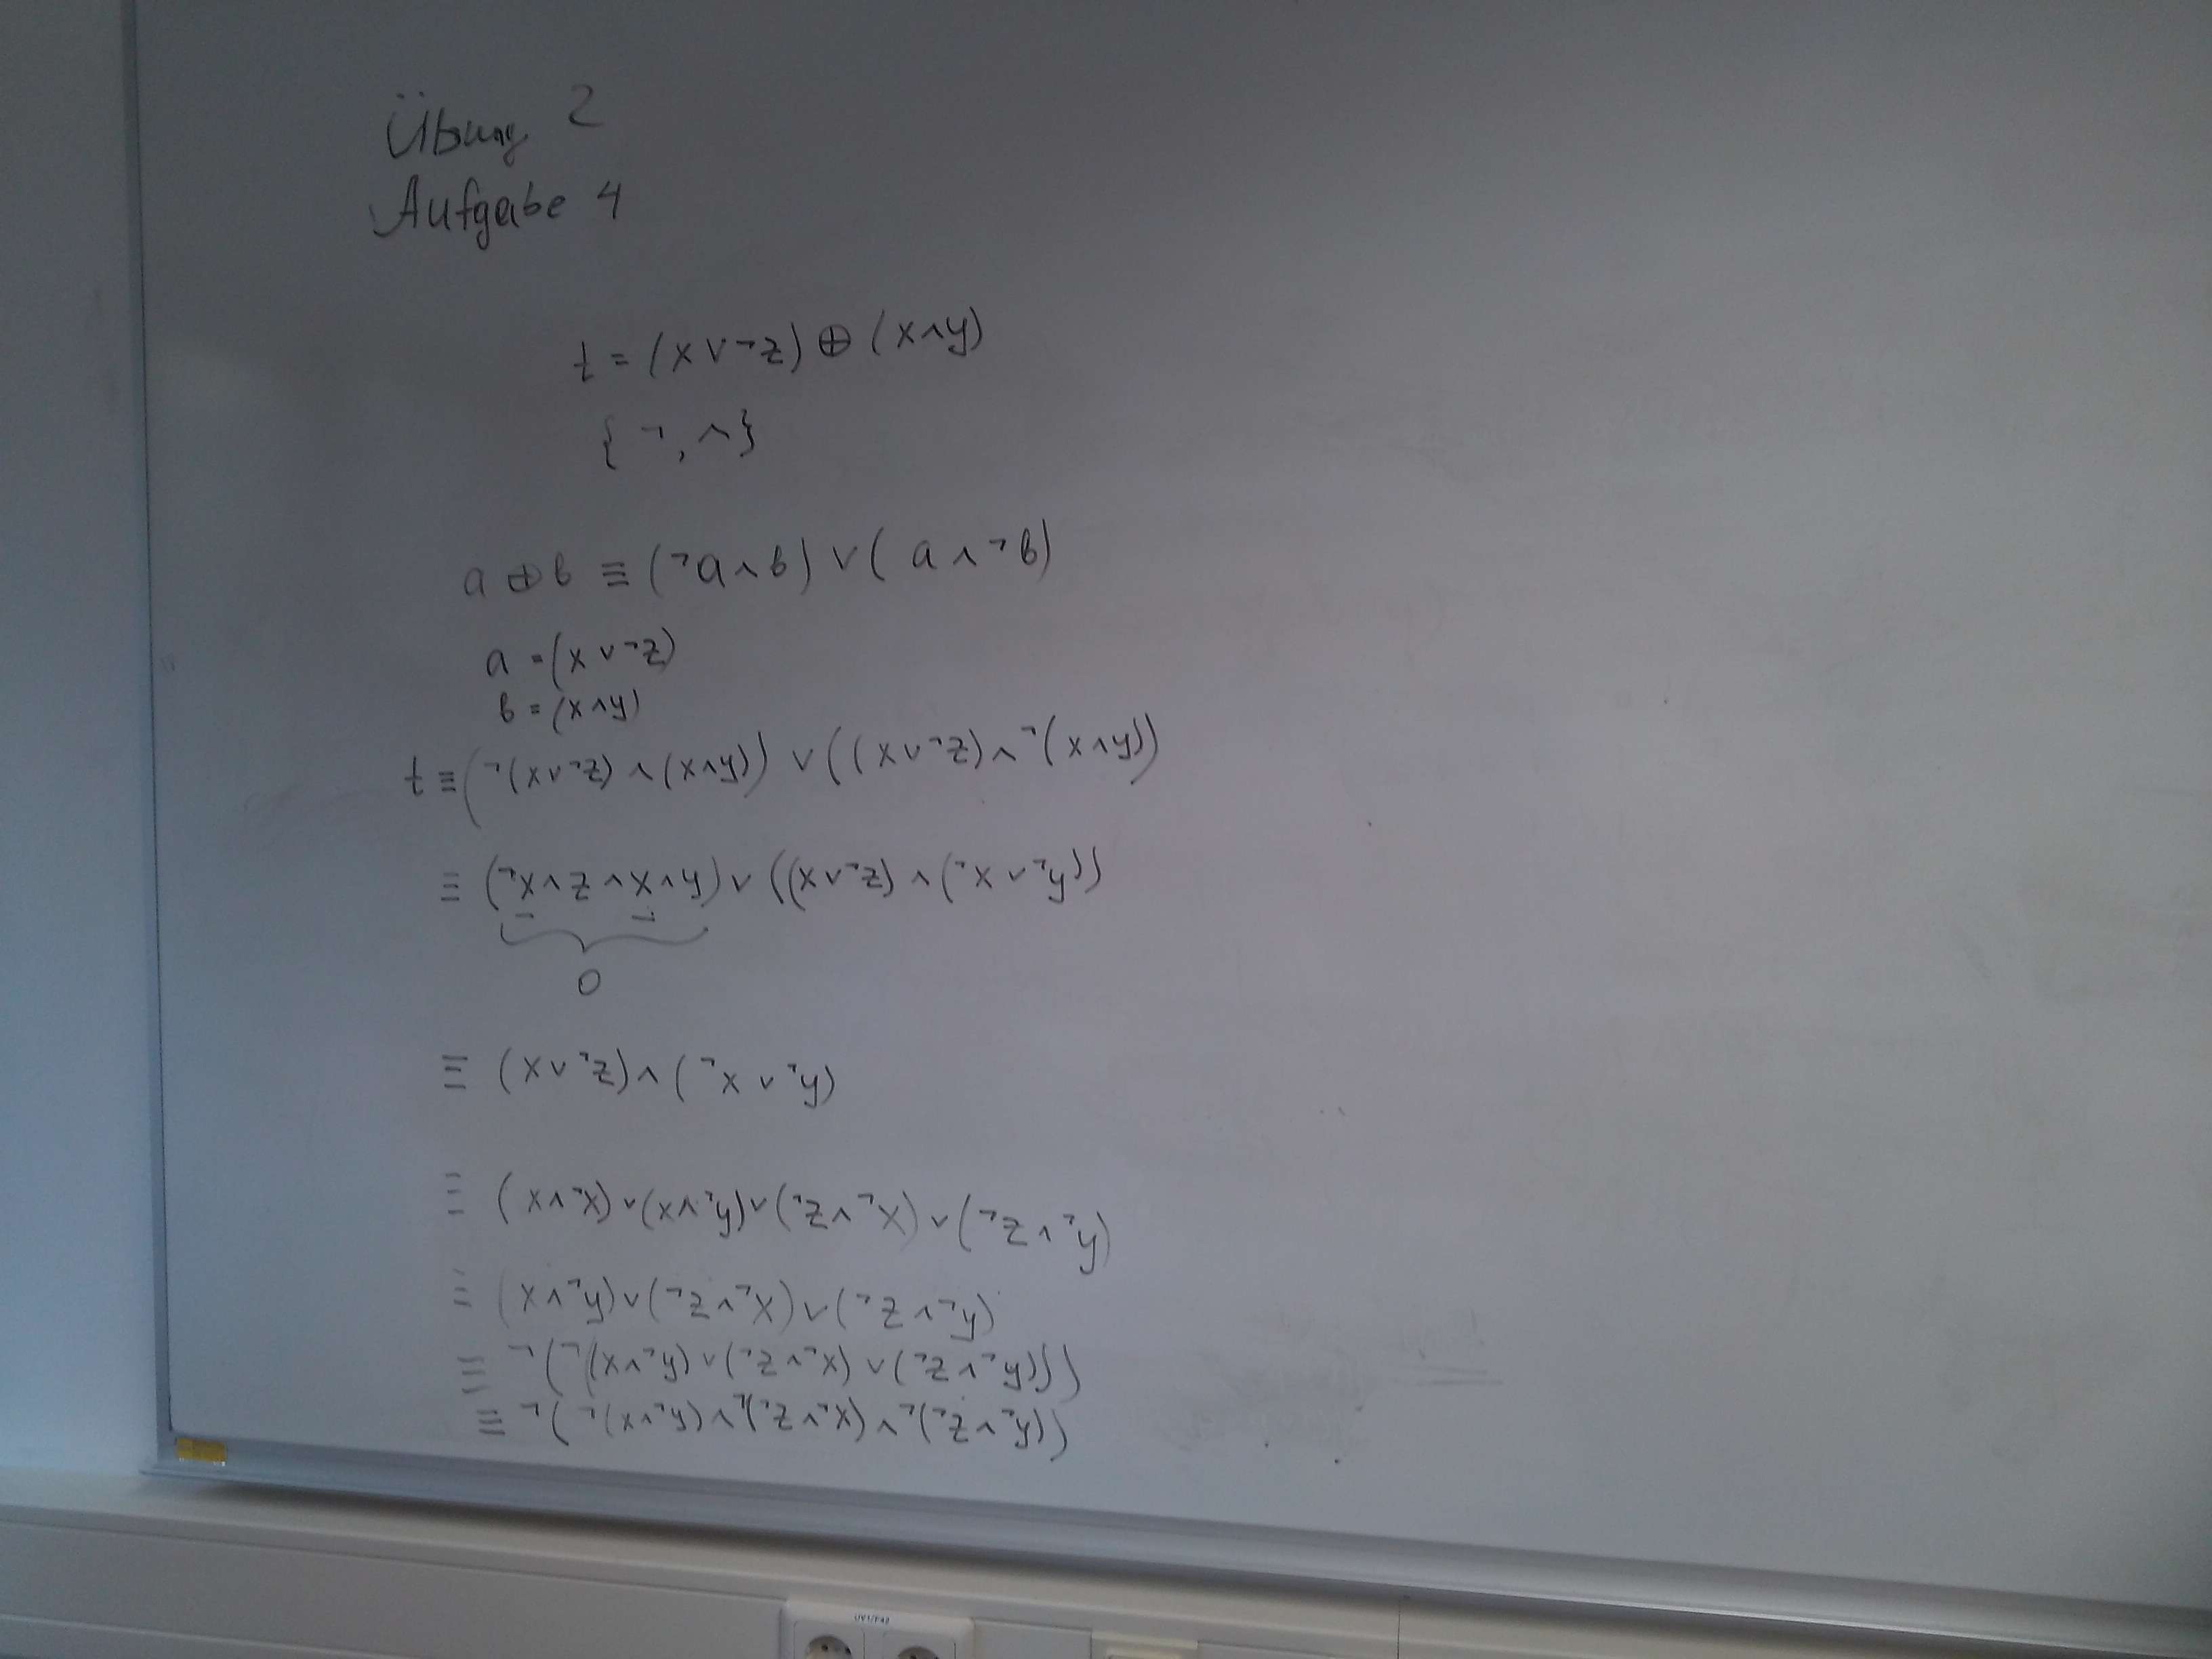 Übung 2
Aufgabe 4
t = (x ∨ ¬z) ⊕ (x ∧ y)
{ ¬, ∧ }
a ⊕ b ≡ (¬a ∧ b) ∨ ( a ∧ ¬b)
a = (x ∨ ¬z)
b = (x ∧ y)
t ≡ (¬(x ∨ ¬z) ∧ (x ∧ y)) ∨ ((x ∨ ¬z) ∧ ¬(x ∧ y))
≡ (¬x ∧ z ∧ x ∧ y) ∨ ((x ∨ ¬z) ∧ (¬x ∨ ¬y))
0
≡ (x ∨ ¬z) ∧ (¬x ∨ ¬y)
≡ (x ∧ ¬x) ∨ (x ∧ ¬y) ∨ (¬z ∧ ¬x) ∨ (¬z ∧ ¬y)
≡ (x ∧ ¬y) ∨ (¬z ∧ ¬x) ∨ (¬z ∧ ¬y)
≡ ¬(¬((x ∧ ¬y) ∨ (¬z ∧ ¬x) ∨ (¬z ∧ ¬y)))
≡ ¬(¬(x ∧ ¬y) ∧ ¬(¬z ∧ ¬x) ∧ ¬(¬z ∧ ¬y))